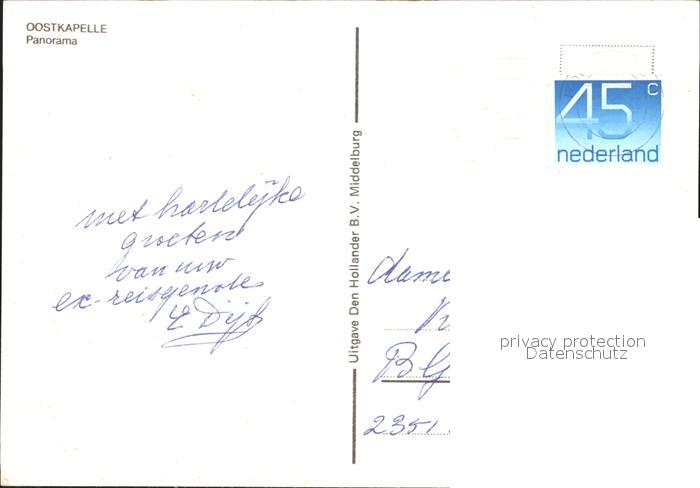 OOSTKAPELLE
Panorama
met hartelijke
groeten
van uw
ex-reisgenote
E Dijk
Uitgave Den Hollander B.V. Middelburg
45 c
nederland
Dame
2351
privacy protection
Datenschutz